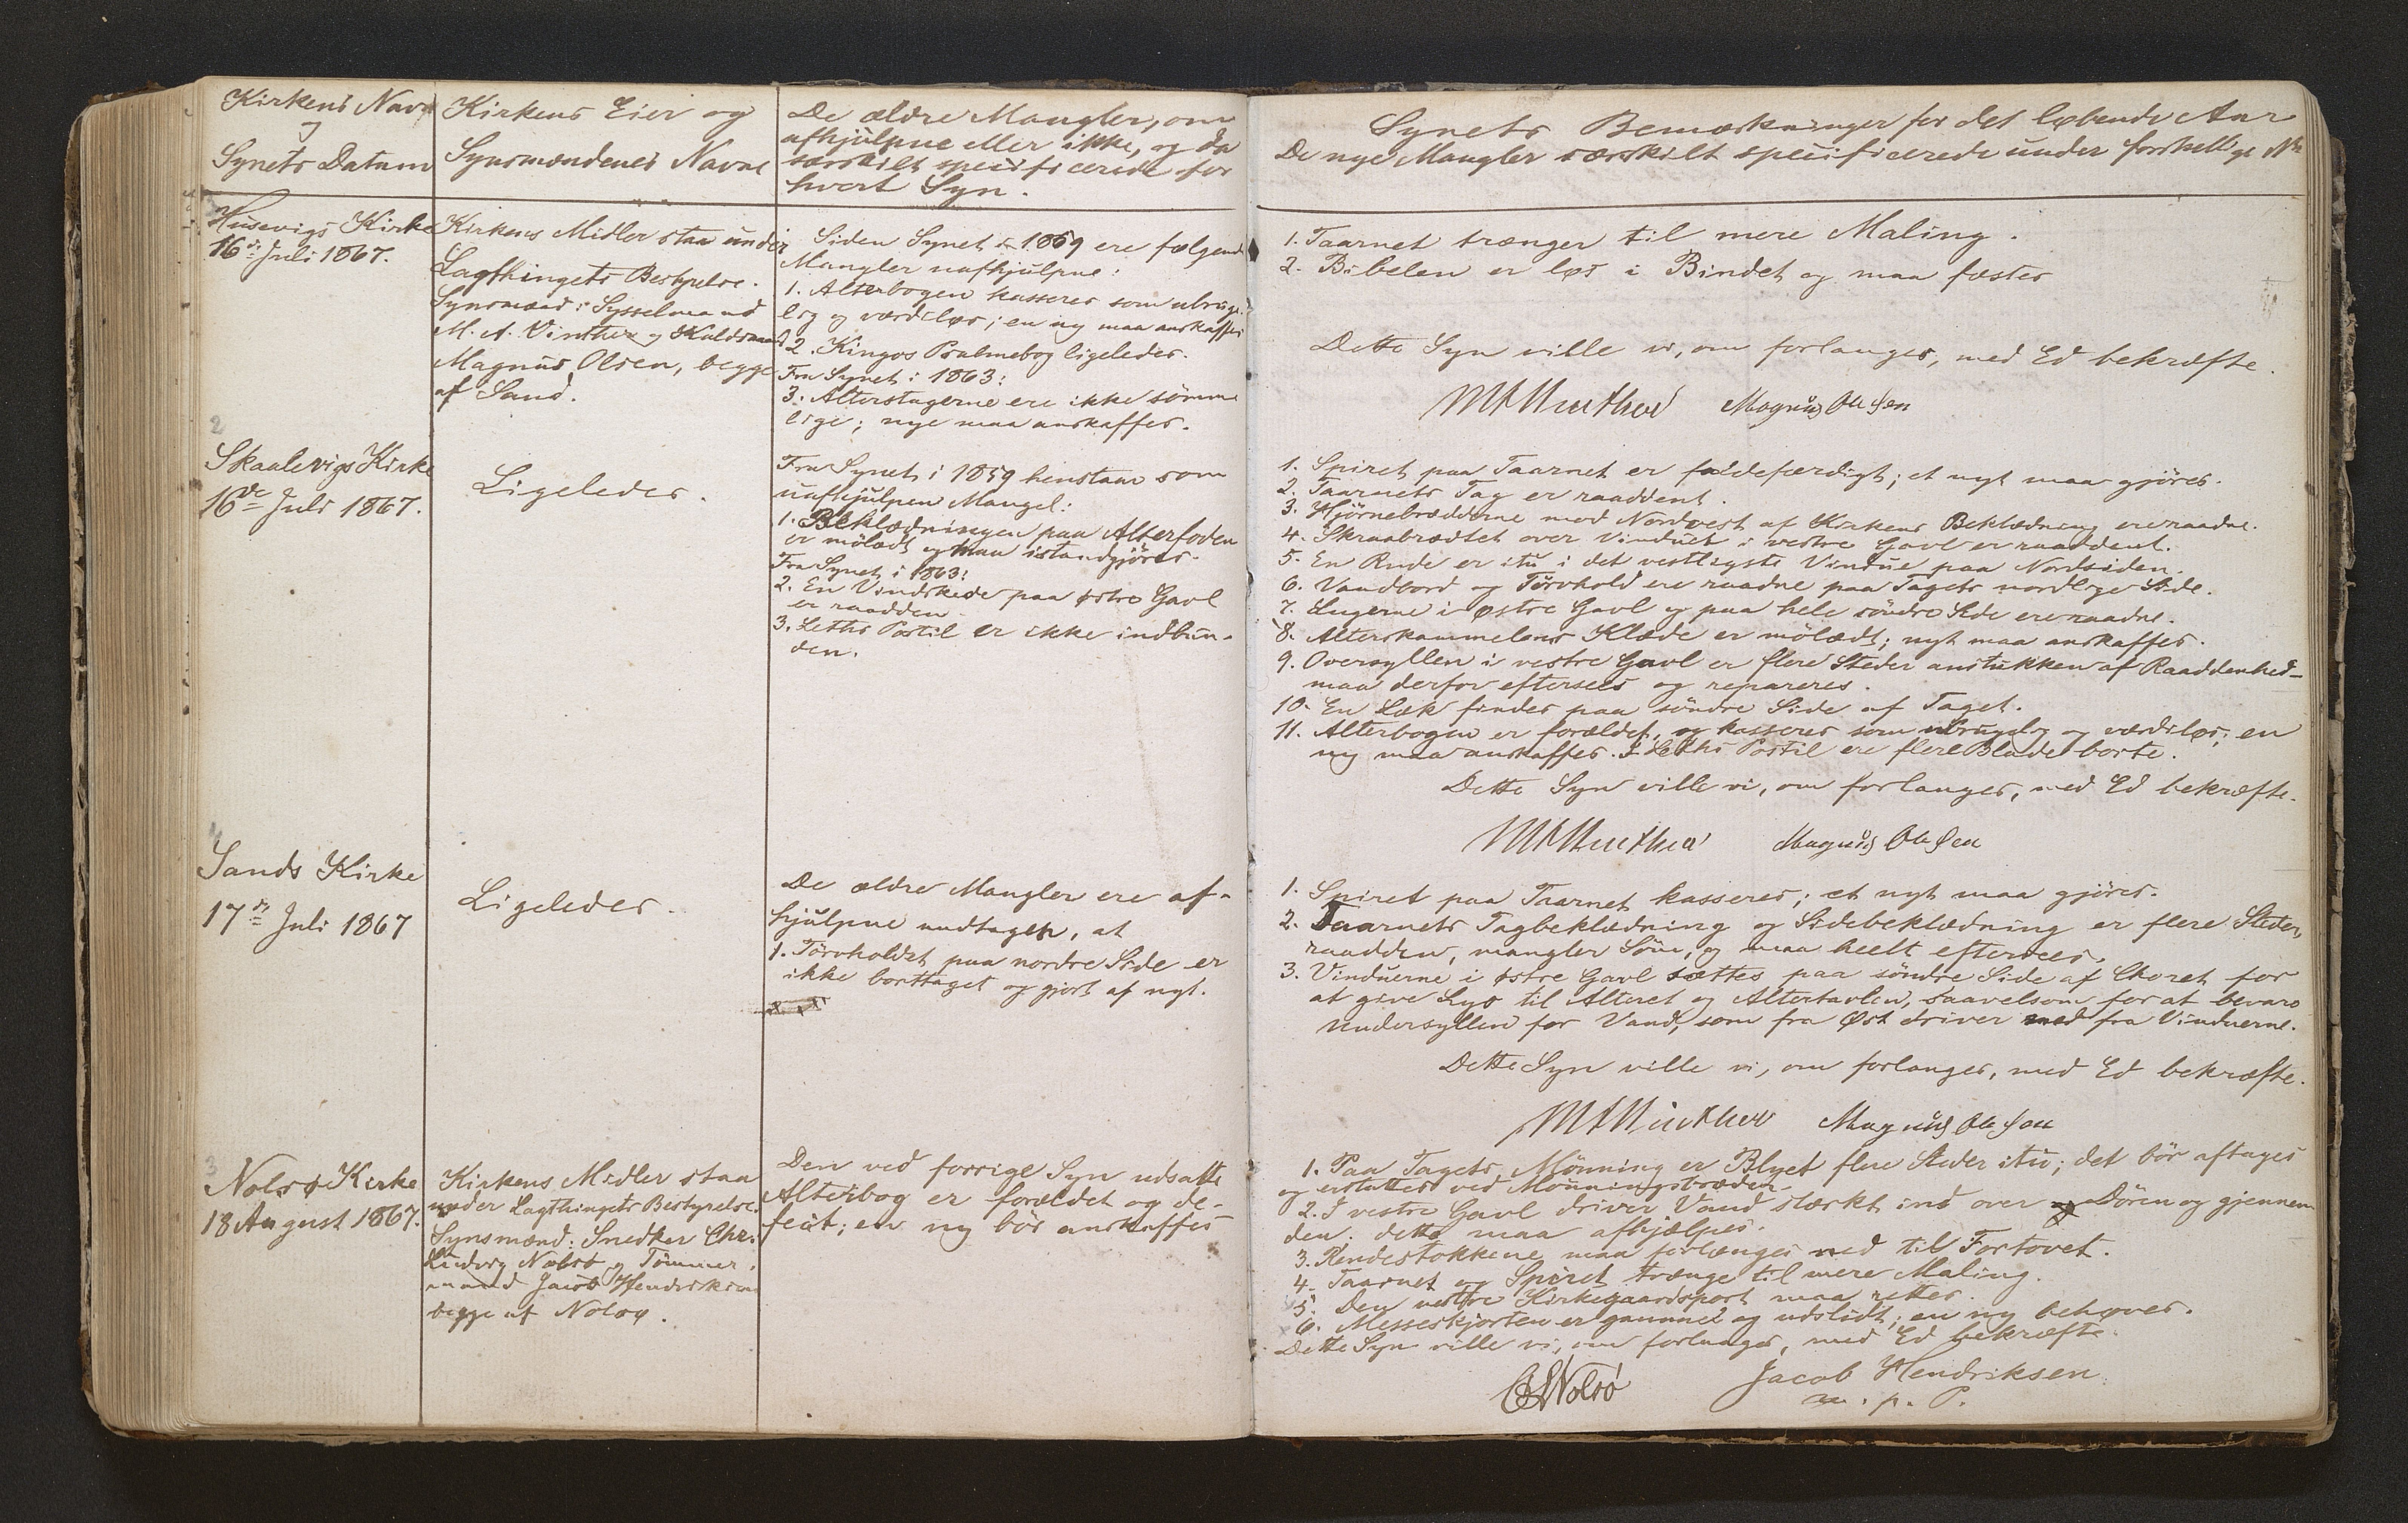 Kirkens Navn
og
Synets Datum
Kirkens Eier og
Synsmændenes Navne
De ældre Mangler, om
afhjulpne eller ikke, og da
særskilt specificerede for
hvert Syn.
Synets Bemærkninger for det løbende Aar
De nye Mangler særskilt specificerede under forskellige No
Husevigs Kirke
16de Juli 1867.
Kirkens Midler staa under
Lagthingets Bestyrelse.
Synsmænd: Sysselmand
M. A. Vinther og Kuldsmand
Magnus Olsen, begge
af Sand.
Siden Synet i 1859 ere følgende
Mangler uafhjulpne:
1. Alterbogen kasseres som ubruge-
lig og værdiløs; en ny maa anskaffes
2. Kingos Psalmebog ligeledes.
Fra Synet i 1863:
3. Alterstagerne ere ikke sømme
lige; nye maa anskaffes.
1. Taarnet trænger til mere Maling.
2. Bibelen er løs i Bindet og maa fæstes
Dette Syn ville vi, om forlanges, med Ed bekræfte.
MAWinther Magnus Olesen
2
Skaalevigs Kirke
16de Juli 1867.
Ligeledes.
Fra Synet i 1859 henstaar som
uafhjulpen Mangel:
1. Beklædningen paa Alterfoden
er mölædt og maa istandgjöres.
Fra Synet i 1863:
2. En Vindskede paa østre Gavl
er raadden.
3. Leths Postil er ikke indbun-
den.
1. Spiret paa Taarnet er faldefærdigt; et nyt maa gjöres.
2. Taarnets Tag er raaddent.
3. Hjörnebrædderne mod Nordvest af Kirkens Beklædning ere raadne.
4. Skraabrædtet over Vinduet i vestre Gavl er raaddent.
5. En Rude er itu i det vestligste Vindue paa Nordsiden.
6. Vandbord og Törvhold ere raadne paa Tagets nordlige Side.
7. Lugerne i østre Gavl og paa hele söndre Side ere raadne.
8. Alterskammelens Klæde er mölædt; nyt maa anskaffes.
9. Oversyllen i vestre Gavl er flere Steder anstukken af Raaddenhed -
maa derfor eftersees og repareres.
10. En Læk findes paa söndre Side af Taget.
11. Alterbogen er forældet, og kasseres som ubrugelig og værdiløs; en
ny maa anskaffes. I Leths Postil ere flere Blade borte.
Dette Syn ville vi, om forlanges, med Ed bekræfte.
MAWinther Magnus Olesen
4
Sands Kirke
17de Juli 1867
Ligeledes.
De ældre Mangler ere af-
hjulpne undtagen, at
1. Törvholdet paa nordre Side er
ikke borttaget og gjort af nyt.
1. Spiret paa Taarnet kasseres; et nyt maa gjöres.
2. Taarnets Tagbeklædning og Sidebeklædning er flere Steder
raadden, mangler Söm, og maa heelt eftersees.
3. Vinduerne i østre Gavl sættes paa söndre Side af Choret for
at give Lys til Alteret og Altertavlen, saavelsom for at bevare
Undersyllen for Vand, som fra Øst driver ned fra Vinduerne.
Dette Syn ville vi, om forlanges, med Ed bekræfte.
MAWinther Magnus Olesen
3
Nolsø Kirke
18 August 1867.
Kirkens Midler staa
under Lagthingets Bestyrelse.
Synsmænd: Snedker Chr.
Ludvig Nolsö og Tömmer-
mand Jacob Hendriksen
begge af Nolsø.
Den ved forrige Syn udsatte
Alterbog er forældet og de-
fect; en ny bör anskaffes
1. Paa Tagets Mönning er Blyet flere Steder itu; det bör aftages
og erstattes ved Mönningsbræder.
2. I vestre Gavl driver Vand stærkt ind over Dören og gjennem
den. dette maa afhjælpes.
3. Rendestokkene maa forlænges ned til Fortovet.
4. Taarnet og Spiret trænge til mere Maling.
5. Den vestre Kirkegaardsport maa rettes.
6. Messeskjorten er gammel og udslidt; en ny behøves.
Dette Syn ville vi, om forlanges, med Ed bekræfte.
CLNolsö Jacob Hendriksen
m. p. P.